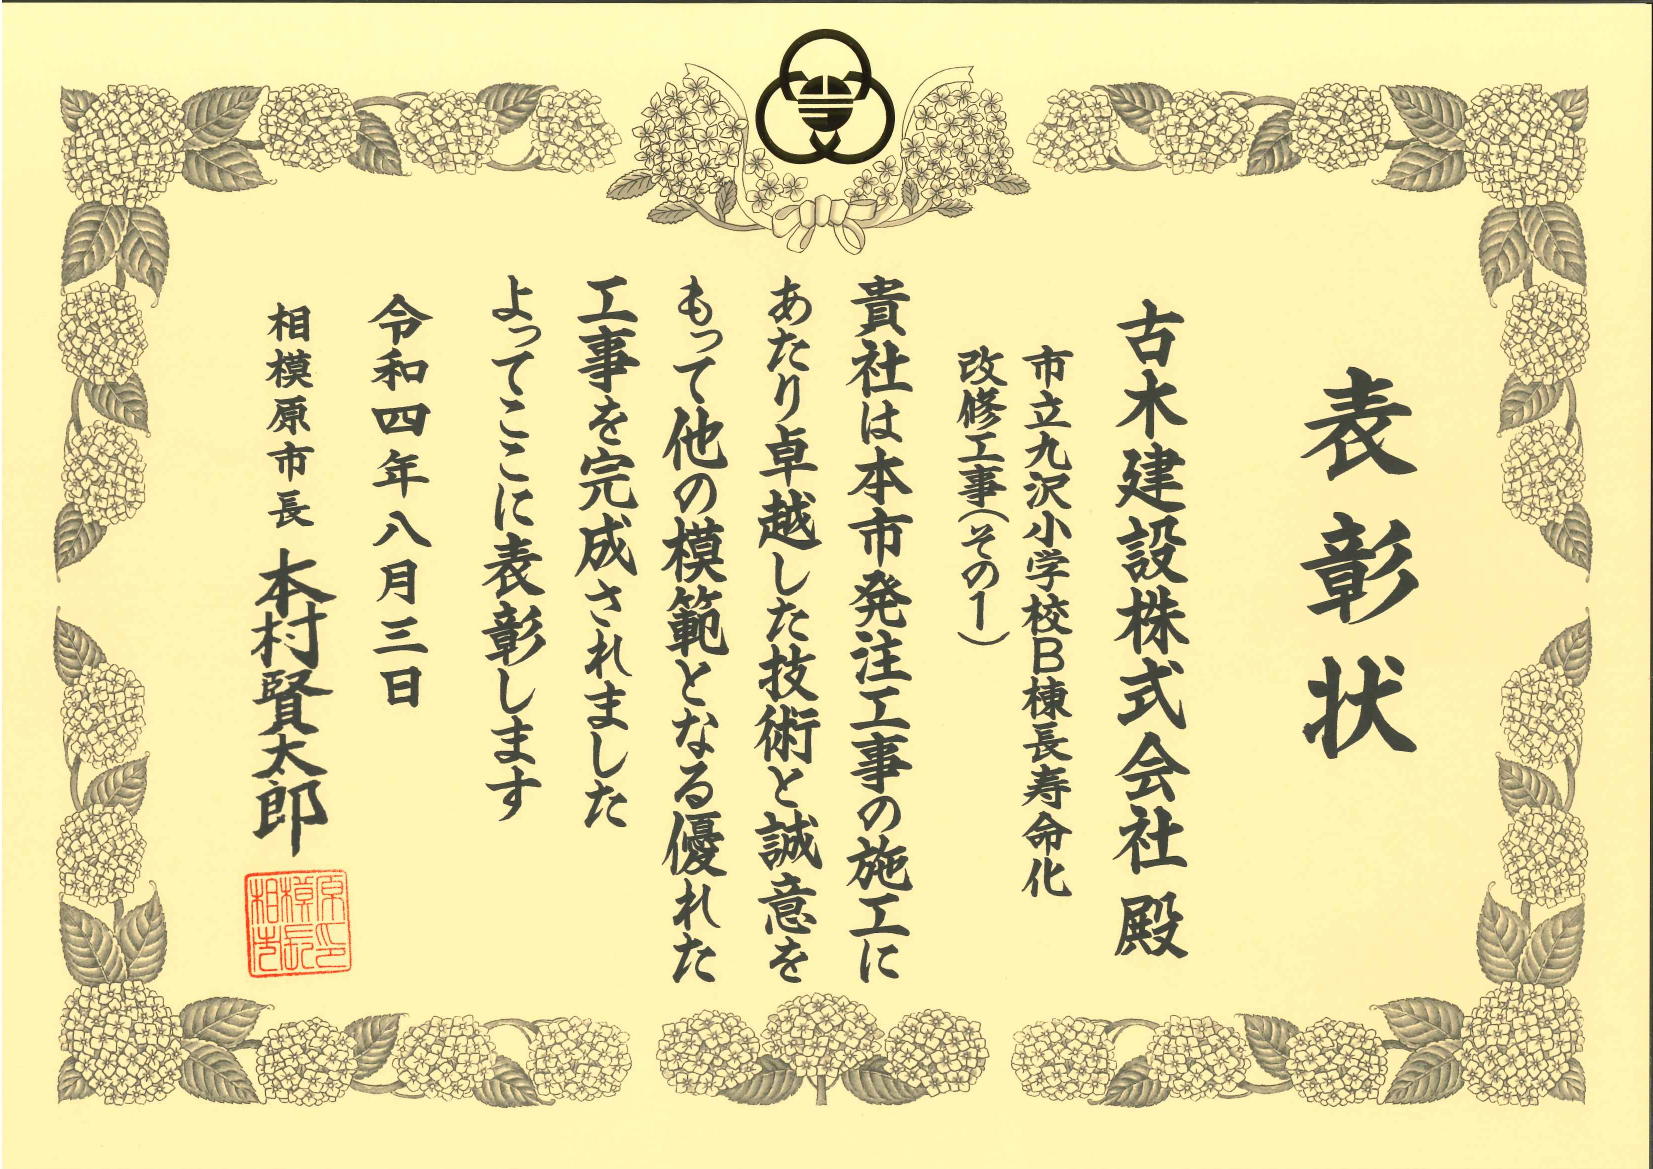 表彰状
古木建設株式会社 殿
市立九沢小学校B棟長寿命化
改修工事(その1)
貴社は本市発注工事の施工に
あたり卓越した技術と誠意を
もって他の模範となる優れた
工事を完成されました
よってここに表彰します
令和四年八月三日
相模原市長 本村賢太郎
相模原市長印